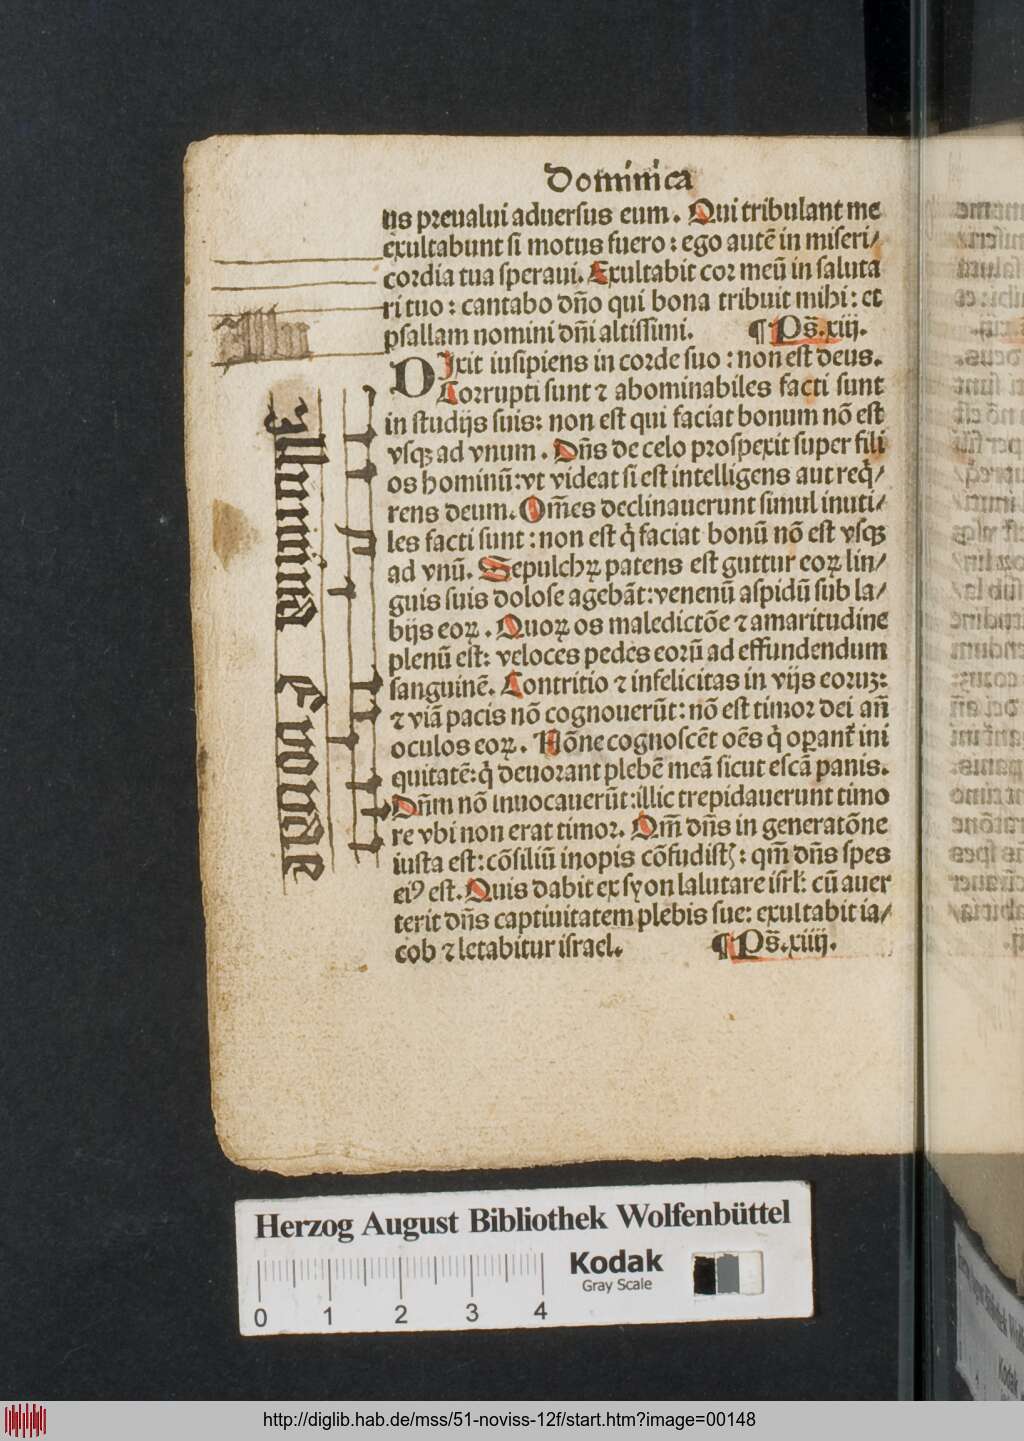 Dominica
us preualui aduersus eum. Qui tribulant me
exultabunt si motus fuero: ego autē in miseri/
cordia tua speraui. Exultabit cor meū in saluta
ri tuo: cantabo dño qui bona tribuit mihi: et
psallam nomini dñi altissimi. ¶ Ps̄.xiij.
DIxit insipiens in corde suo: non est deus.
Corrupti sunt ⁊ abominabiles facti sunt
in studijs suis: non est qui faciat bonum nō est
vsqꝫ ad vnum. Dñs de celo prospexit super fili
os hominū: vt videat si est intelligens aut req̇/
rens deum. Om̄es declinauerunt simul inuti/
les facti sunt: non est q̇ faciat bonū nō est vsqꝫ
ad vnū. Sepulchꝝ patens est guttur eoꝝ lin/
guis suis dolose agebāt: venenū aspidū sub la/
bijs eoꝝ. Quoꝝ os maledictōe ⁊ amaritudine
plenū est: veloces pedes eorū ad effundendum
sanguinē. Contritio ⁊ infelicitas in vijs eoruꝫ:
⁊ viā pacis nō cognouerūt: nō est timor dei añ
oculos eoꝝ. Nōne cognoscēt oēs q̇ oꝑant̄ ini
quitatē: q̇ deuorant plebē meā sicut escā panis.
Dñm nō inuocauerūt: illic trepidauerunt timo
re vbi non erat timor. Qm̄ dñs in generatōne
iusta est: cōsiliū inopis cōfudisti: qm̄ dñs spes
eiꝰ est. Quis dabit ex syon salutare isrl: cū auer
terit dñs captiuitatem plebis sue: exultabit ia/
cob ⁊ letabitur israel. ¶ Ps̄.xiiij.
Illu
Illumina Euouae
Herzog August Bibliothek Wolfenbüttel
Kodak
Gray Scale
0 1 2 3 4
http://diglib.hab.de/mss/51-noviss-12f/start.htm?image=00148